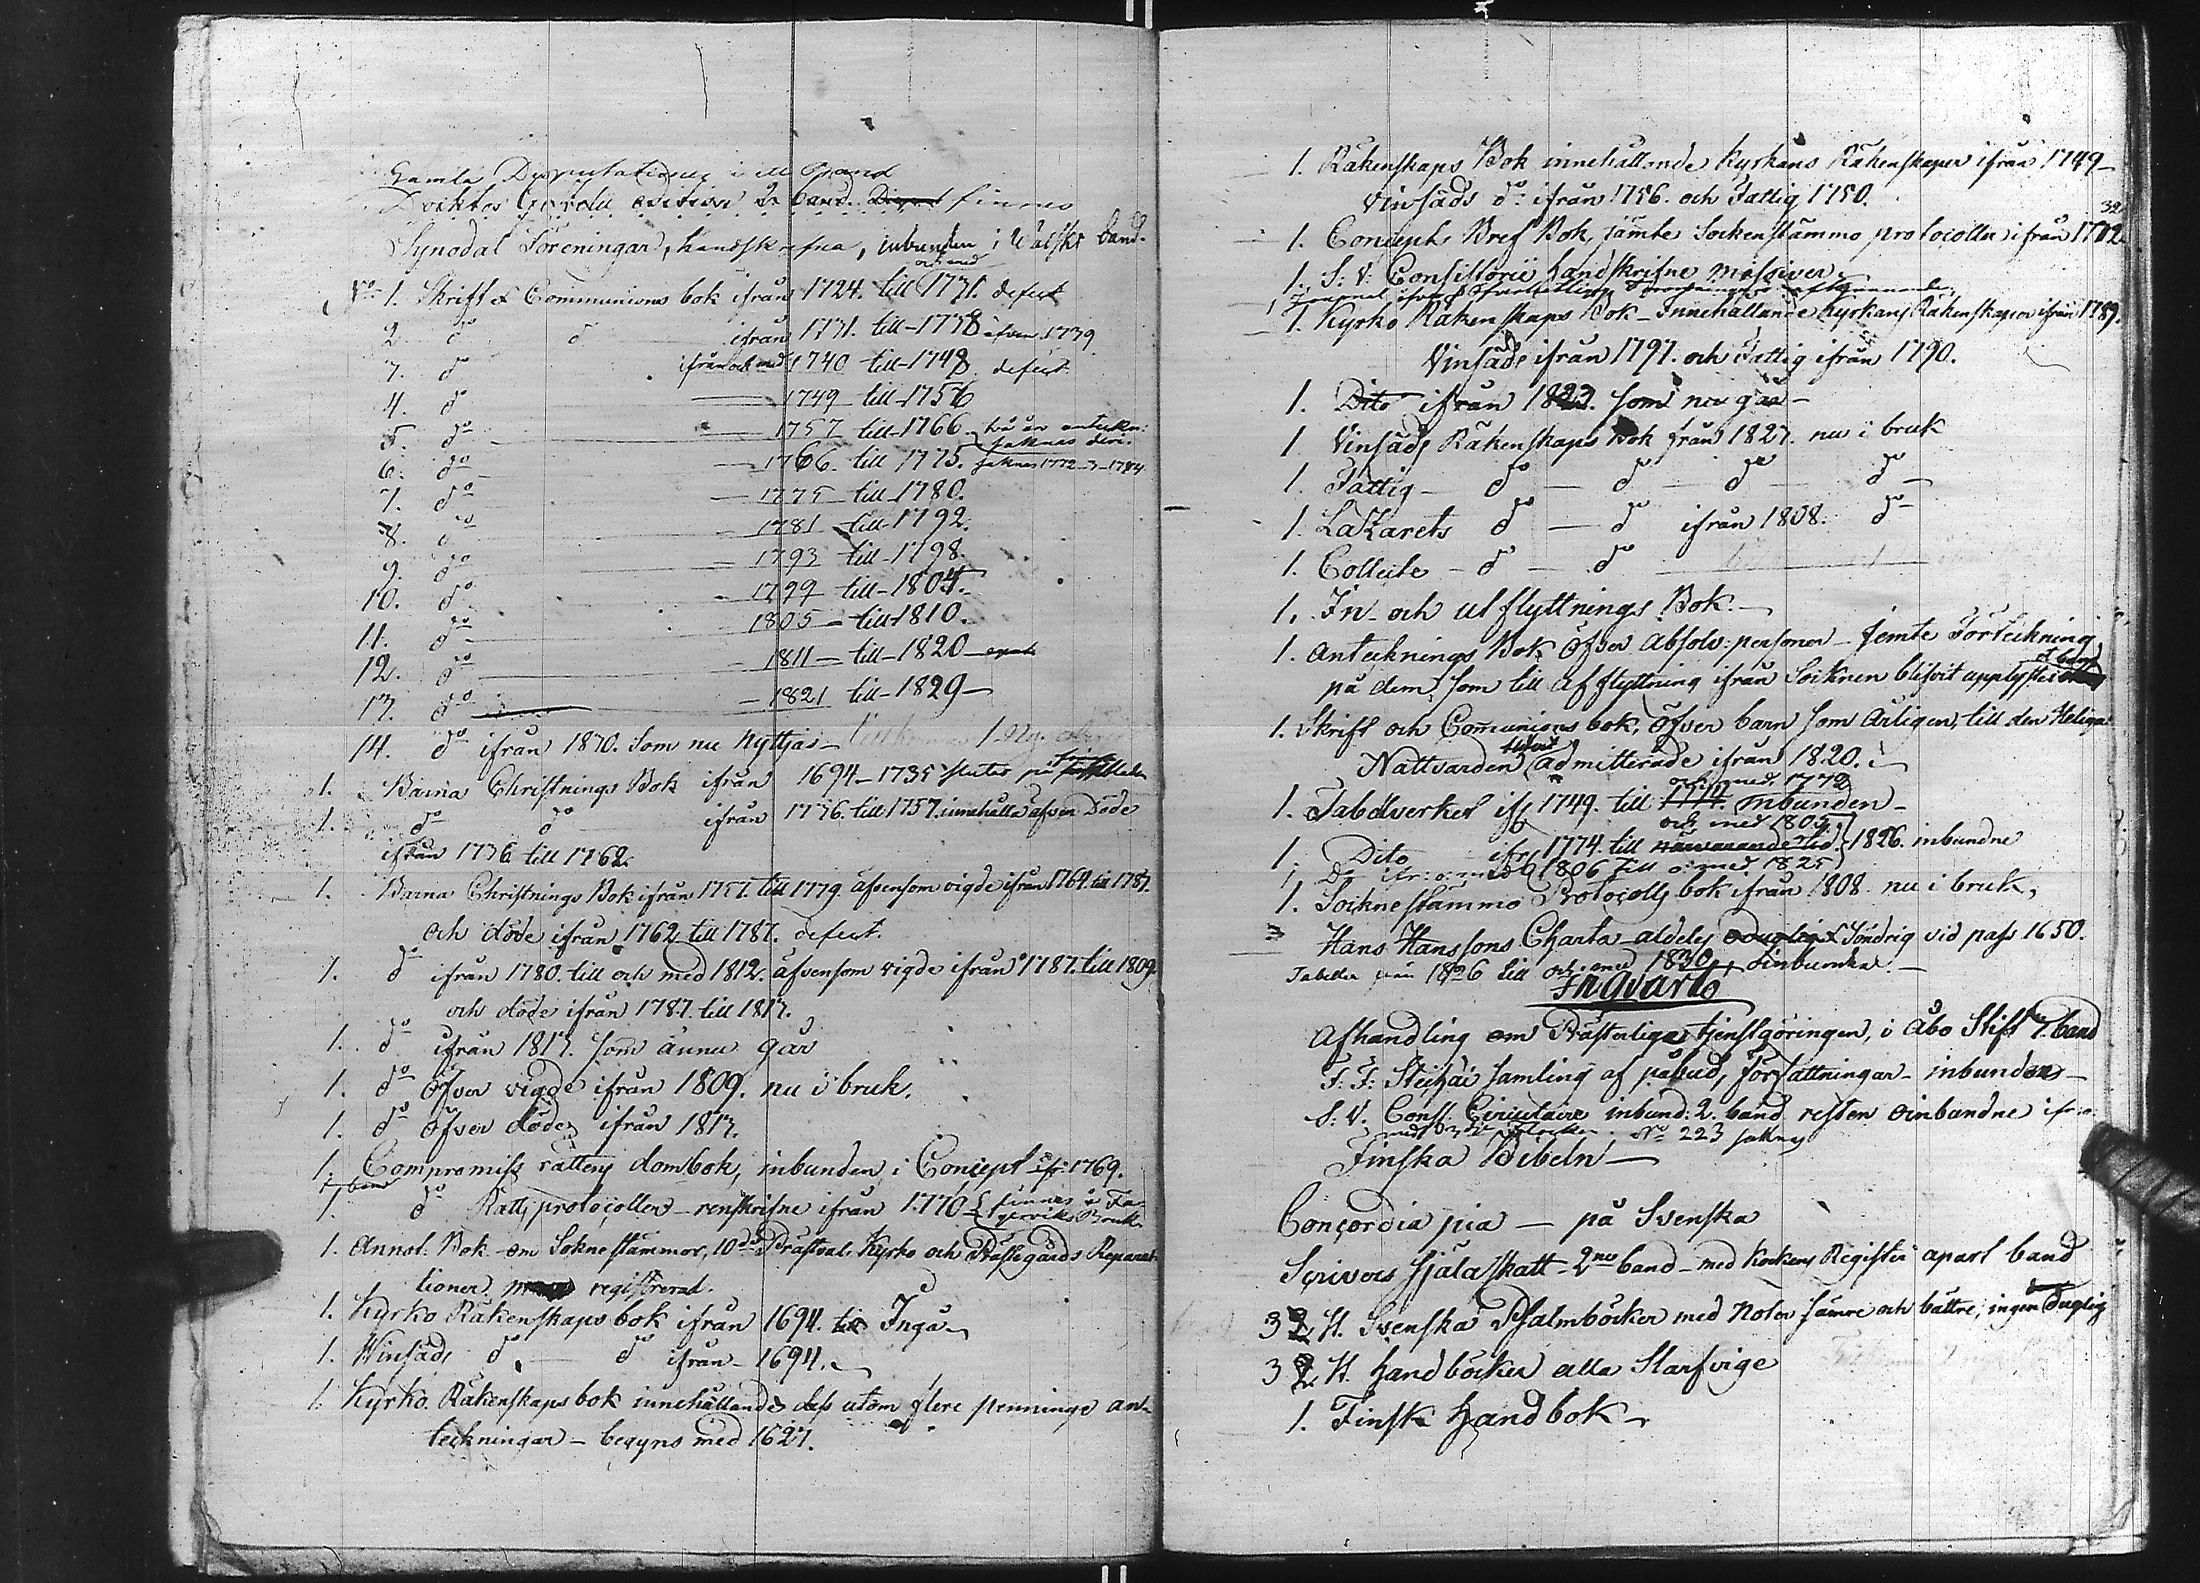 Gamla Disputationer i ett Band
Synodal Föreningar, handskrefna, inbunden i Walskt band.
och med
No 1. Skrift & Communions bok ifrån 1724. till 1731. defect
2. do do ifrån 1731. till 1738 äfven 1739
3. do ifrån och med 1740 till 1748. defect
4. do 1749 till 1756
5. do 1757 till 1766.
6. do 1766. till 1775. saknas 1772-3-1774.
7. do 1775 till 1780.
8. do 1781 till 1792.
9. do 1793 till 1798.
10. do 1799 till 1804.
11. do 1805 till 1810.
12. do 1811 till 1820
13. do 1821 till 1829
14. do ifrån 1830. som nu nyttjas
1. Barna Christnings Bok ifrån 1694-1735 slutes på
1. do do ifrån 1736. till 1757. innehålla äfven Döde
ifrån 1736 till 1762.
1. Barna Christnings Bok ifrån 1757. till 1779. äfvensom vigde ifrån 1764. till 1787.
och döde ifrån 1762 till 1787. defect.
1. do ifrån 1780. till och med 1812. äfvensom vigde ifrån 1787. till 1809.
och döde ifrån 1787. till 1813.
1. do ifrån 1813. som ännu går
1. do öfver vigde ifrån 1809. nu i bruk.
1. do öfver döde ifrån 1813.
1. Compromiss rättens dombok, inbunden i Concept ifr: 1769.
1. do Rätts protocoller renskrifne ifrån 1770 finnes å Fa-
gerviks Bruk
1. Annot: Bok om Sokne stämmor, Prästval, Kyrko och Prästegårds Repara-
tioner registrerad.
1. Kyrko Räkenskaps bok ifrån 1694. till Ingå
1. Winsäds do do ifrån 1694.
1. Kyrko Räkenskaps bok innehållande dess utom flere penninge an-
teckningar begyns med 1627.
1. Räkenskaps Bok innehållande Kyrkans Räkenskaper ifrån 1749
Vinsäds do ifrån 1756. och Fattig 1750.
32
1. Concepts Bref Bok, jämte Sockenstämmo protocoller ifrån 1782
1. S: V: Consistorii handskrifne missiver
1. Kyrko Räkenskaps Bok Innehållande Kyrkans Räkenskaper ifrån 1789.
Vinsäds ifrån 1797. och Fattig ifrån 1790.
1. Dito ifrån 1823. som nu går
1 Vinsäds Räkenskaps Bok från 1827. nu i bruk
1. Fattig do do do do
1. Lazarets do do ifrån 1808. do
1. Collecte do do
1. In- och utflyttnings Bok.
1. Antecknings Bok öfver absolv: personer jemte Förteckning
på dem som till afflyttning ifrån Socknen blifvit applyste
1. Skrift och Communions bok, öfver barn som Årligen till den Heliga
Nattvarden blifvit admitterade ifrån 1820.
och med 1772
1. Tabellverket ifr 1749. till 1774. inbunden
och med 1805
1. Dito ifr 1774. till närvarande tid. 1826. inbundne
1 Do ifr: o: med 1806 till o: med 1825
1. Sockne stämmo Protocolls bok ifrån 1808 nu i bruk,
Hans Hanssons Charta aldeles oduglig & Söndrig vid pass 1650.
Tabeller från 1826 till och med 1830, oinbundna.
In qvarto
Afhandling om Prästerliga tjenstgöringen, i Åbo Stift 7. band
Samling af påbud, författningar inbunden
S: V. Cons: Circulaire inbund: 2. band resten oinbundne
No 223 saknas
Finska Bibeln
Concordia pia på Svenska
Scrivers Själaskatt 2ne band med Register apart band
3 2 st. Svenska Psalmböcker med Noter sämre och bättre, ingen duglig
3 2 st. handböcker alla Slarfvige
1. Finsk handbok